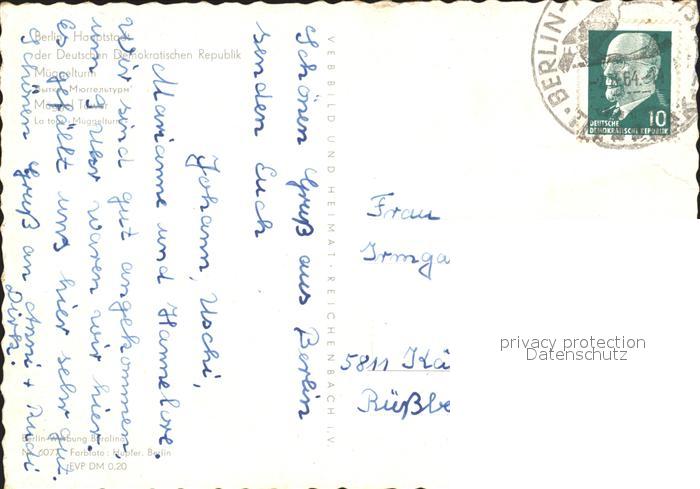 Berlin, Hauptstadt
der Deutschen Demokratischen Republik
Müggelturm
Müggel Tower
La tour Müggelturm
Schönen Gruß aus Berlin
senden Euch
Johann, Uschi,
Marianne und Hannelore.
Wir sind gut angekommen,
um 3 Uhr waren wir hier.
Es gefällt uns hier sehr gut.
Schönen Gruß an Anni + Rudi
Dirk.
VEB BILD UND HEIMAT · REICHENBACH I. V.
BERLIN
64
10
DEUTSCHE
DEMOKRATISCHE REPUBLIK
Frau
Irmga
5811 Kä
Rüßbe
privacy protection
Datenschutz
Berlin-Werbung Berolina
Farbfoto: Höpfer, Berlin
EVP DM 0,20